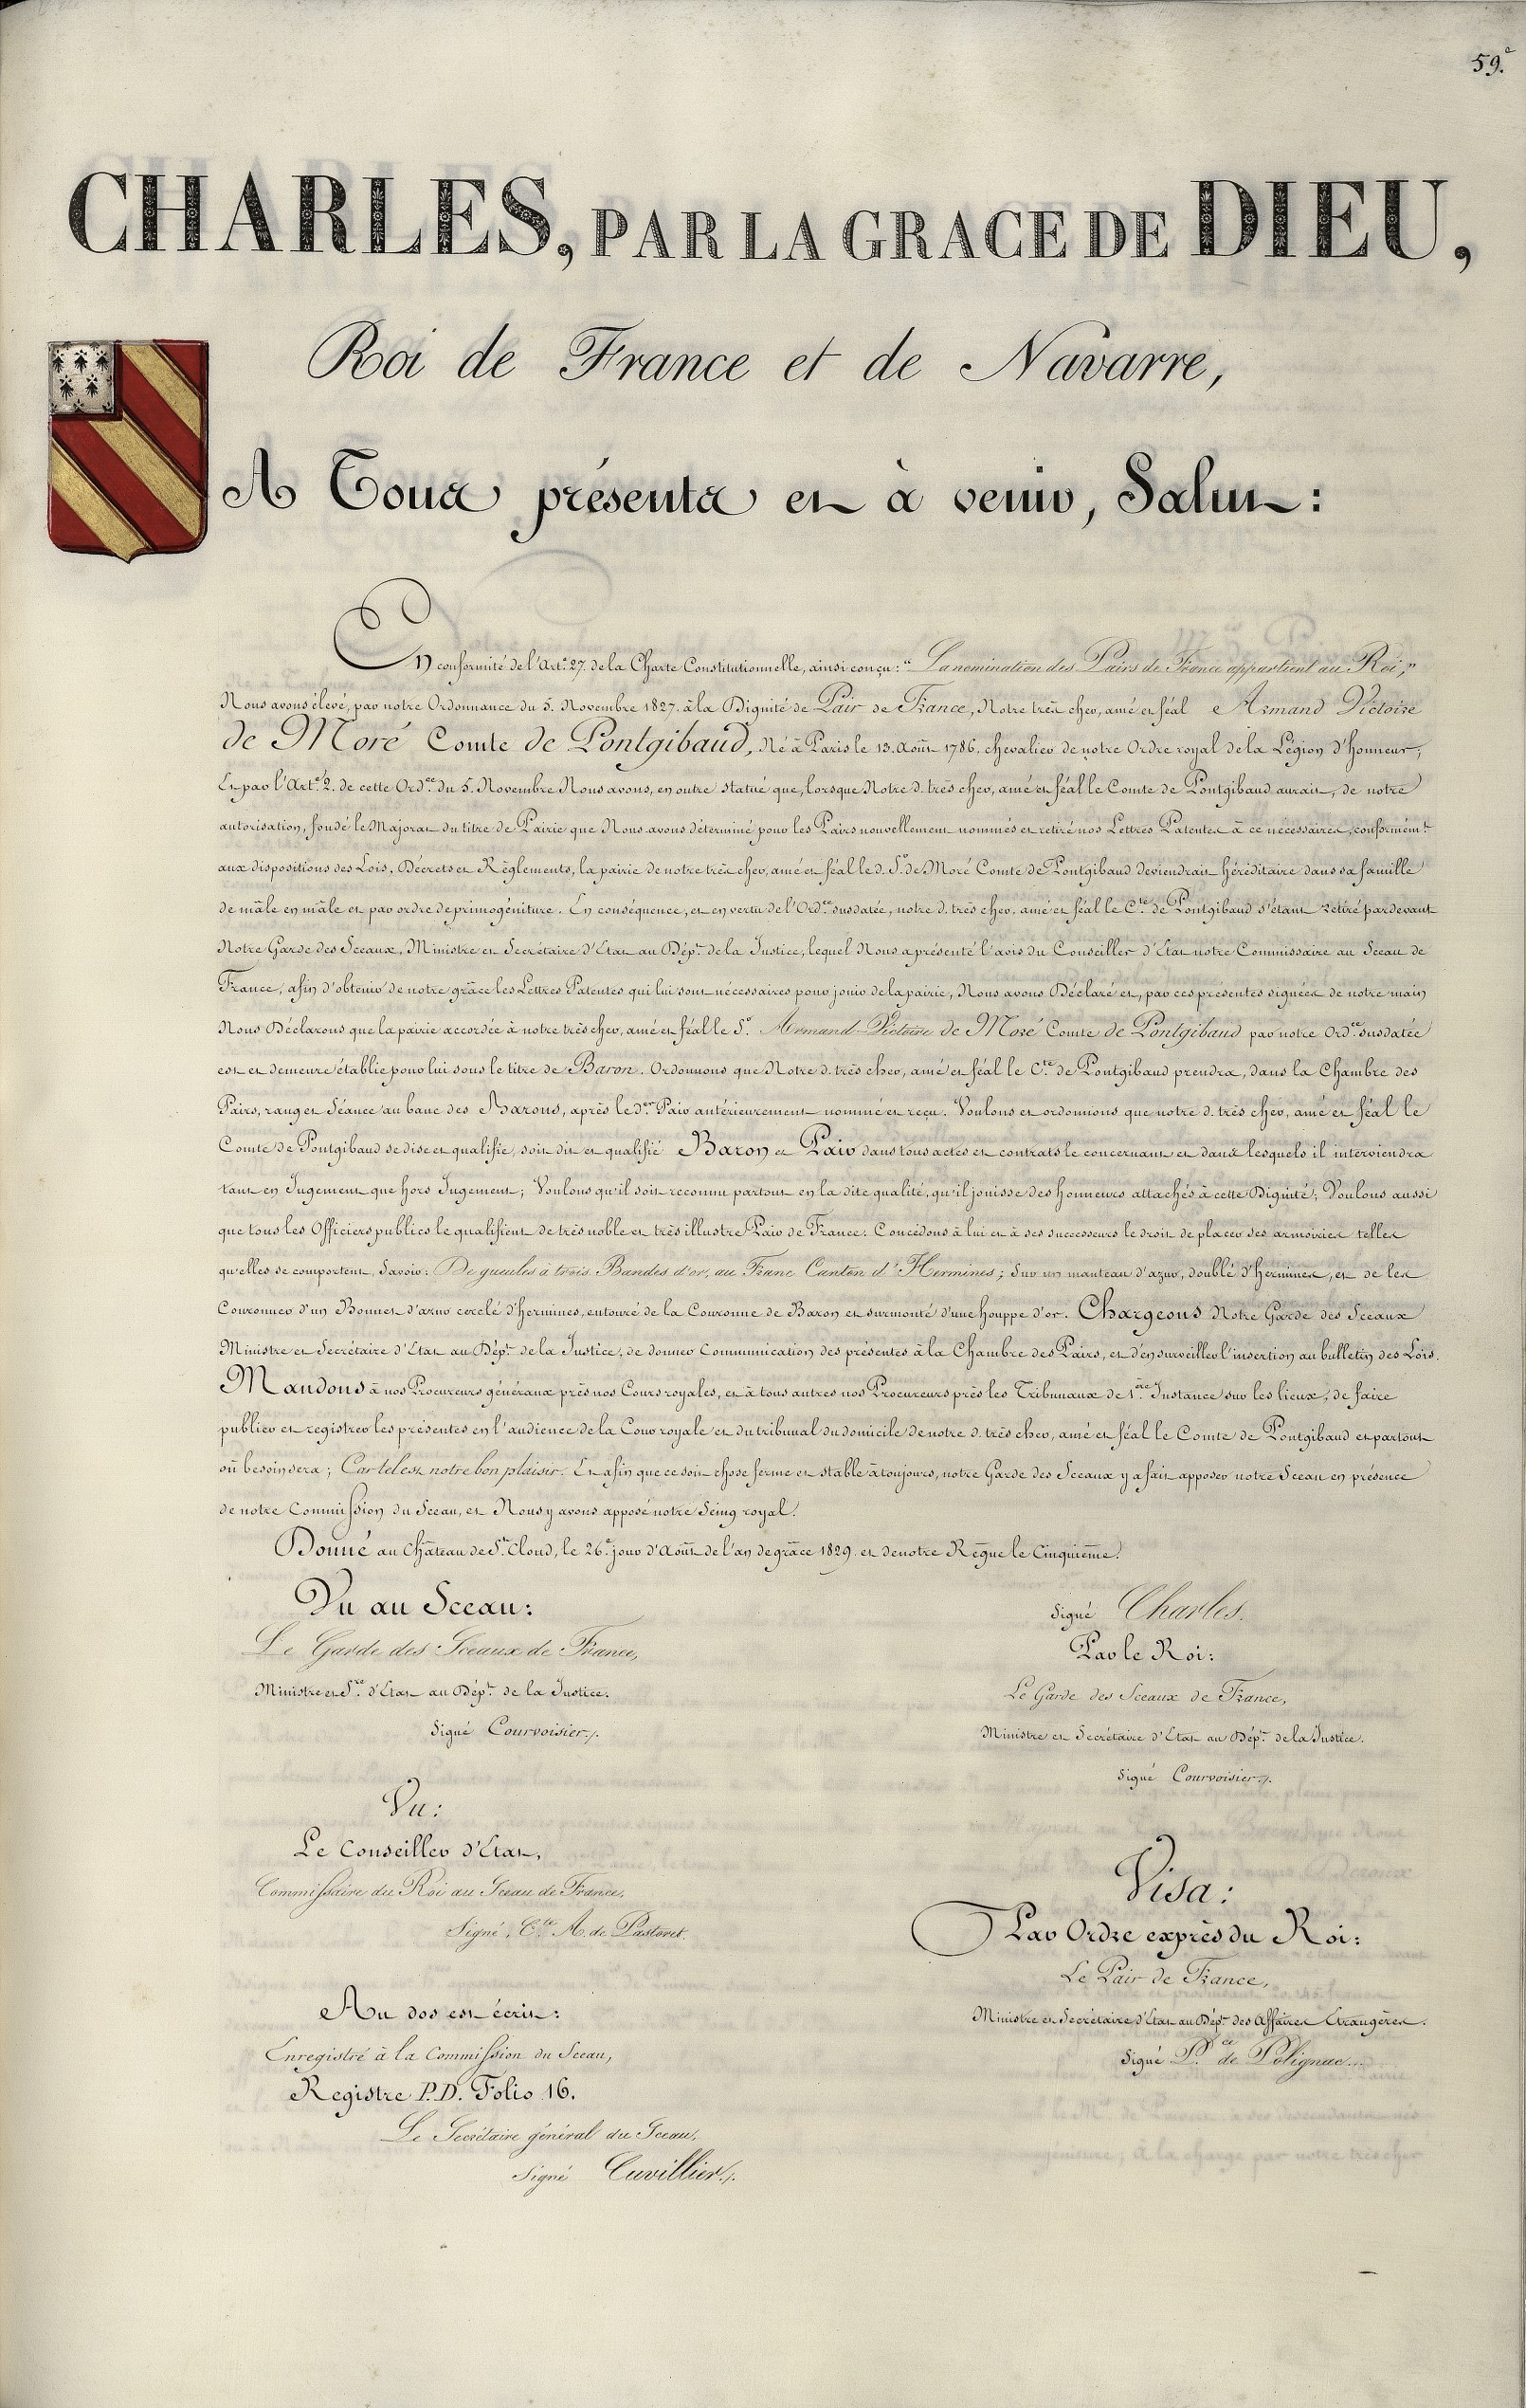 59.e
CHARLES, PAR LA GRACE DE DIEU,
Roi de France et de Navarre,
A Tous présents et à venir, Salut:
En conformité de l'Art.e 27. de la Charte Constitutionnelle, ainsi conçu: "La nomination des Pairs de France appartient au Roi,"
Nous avons élevé, par notre Ordonnance du 5. Novembre 1827. à la Dignité de Pair de France, Notre très cher, amé et féal Armand Victoire
de Moré Comte de Pontgibaud, Né à Paris le 13. Août 1786. chevalier de notre Ordre royal de la Légion d'honneur;
Et par l'Art.e 2. de cette Ord.ce du 5. Novembre Nous avons, en outre statué que, lorsque Notre d. très cher, amé et féal le Comte de Pontgibaud aurait, de notre
autorisation, fondé le Majorat du titre de Pairie que Nous avons déterminé pour les Pairs nouvellement nommés et retiré nos Lettres Patentes à ce nécessaires, conformém.t
aux dispositions des Lois, Décrets et Règlements, la pairie de notre très cher, amé et féal le d. S.r de Moré Comte de Pontgibaud deviendrait héréditaire dans sa famille
de mâle en mâle et par ordre de primogéniture. En conséquence, et en vertu de l'Ord.ce susdatée, notre d. très cher, amé et féal le C.te de Pontgibaud s'étant retiré pardevant
Notre Garde des Sceaux, Ministre et Secrétaire d'Etat au Dép.t de la Justice, lequel Nous a présenté l'avis du Conseiller d'Etat notre Commissaire au Sceau de
France, afin d'obtenir de notre grâce les Lettres Patentes qui lui sont nécessaires pour jouir de la pairie, Nous avons Déclaré et, par ces présentes signées de notre main
Nous Déclarons que la pairie accordée à notre très cher, amé et féal le S.r Armand-Victoire de Moré Comte de Pontgibaud par notre Ord.ce susdatée
est et demeure établie pour lui sous le titre de Baron. Ordonnons que Notre d. très cher, amé et féal le C.te de Pontgibaud prendra, dans la Chambre des
Pairs, rang et Séance au banc des Barons, après le d.er Pair antérieurement nommé et reçu. Voulons et ordonnons que notre d. très cher, amé et féal le
Comte de Pontgibaud se dise et qualifie, soit dit et qualifié Baron et Pair dans tous actes et contrats le concernant et dans lesquels il interviendra
tant en Jugement que hors Jugement; Voulons qu'il soit reconnu partout en la dite qualité, qu'il jouisse des honneurs attachés à cette Dignité; Voulons aussi
que tous les Officiers publics le qualifient de très noble et très illustre Pair de France: Concédons à lui et à ses successeurs le droit de placer ses armoiries telles
qu'elles se comportent, Savoir: De gueules à trois Bandes d'or, au Franc Canton d'Hermines; Sur un manteau d'azur, doublé d'hermines, et de les
Couronner d'un Bonnet d'azur cerclé d'hermines, entouré de la Couronne de Baron et surmonté d'une houppe d'or. Chargeons Notre Garde des Sceaux
Ministre et Secrétaire d'Etat au Dép.t de la Justice, de donner Communication des présentes à la Chambre des Pairs, et d'en surveiller l'insertion au bulletin des Lois.
Mandons à nos Procureurs généraux près nos Cours royales, et à tous autres nos Procureurs près les Tribunaux de 1.ère Instance sur les lieux, de faire
publier et registrer les présentes en l'audience de la Cour royale et du tribunal du domicile de notre d. très cher, amé et féal le Comte de Pontgibaud et partout
où besoin sera; Car tel est notre bon plaisir. Et afin que ce soit chose ferme et stable à toujours, notre Garde des Sceaux y a fait apposer notre Sceau en présence
de notre Commission du Sceau, et Nous y avons apposé notre Seing royal.
Donné au Château de S.t Cloud, le 26.e jour d'Août de l'an de grâce 1829. et de notre Règne le Cinquième.
Vu au Sceau:
Le Garde des Sceaux de France,
Ministre et S.re d'Etat au Dép.t de la Justice.
Signé Courvoisier./.
Signé Charles.
Par le Roi:
Le Garde des Sceaux de France,
Ministre et Secrétaire d'Etat au Dép.t de la Justice.
Signé Courvoisier./.
Vu:
Le Conseiller d'Etat,
Commissaire du Roi au Sceau de France,
Signé, C.te A. de Pastoret.
Visa:
Par Ordre exprès du Roi:
Le Pair de France,
Ministre et Secrétaire d'Etat au Dép.t des Affaires Etrangères.
Signé P.ce de Polignac...
Au dos est écrit:
Enregistré à la Commission du Sceau,
Registre P.D. Folio 16.
Le Secrétaire général du Sceau,
Signé Cuvillier./.